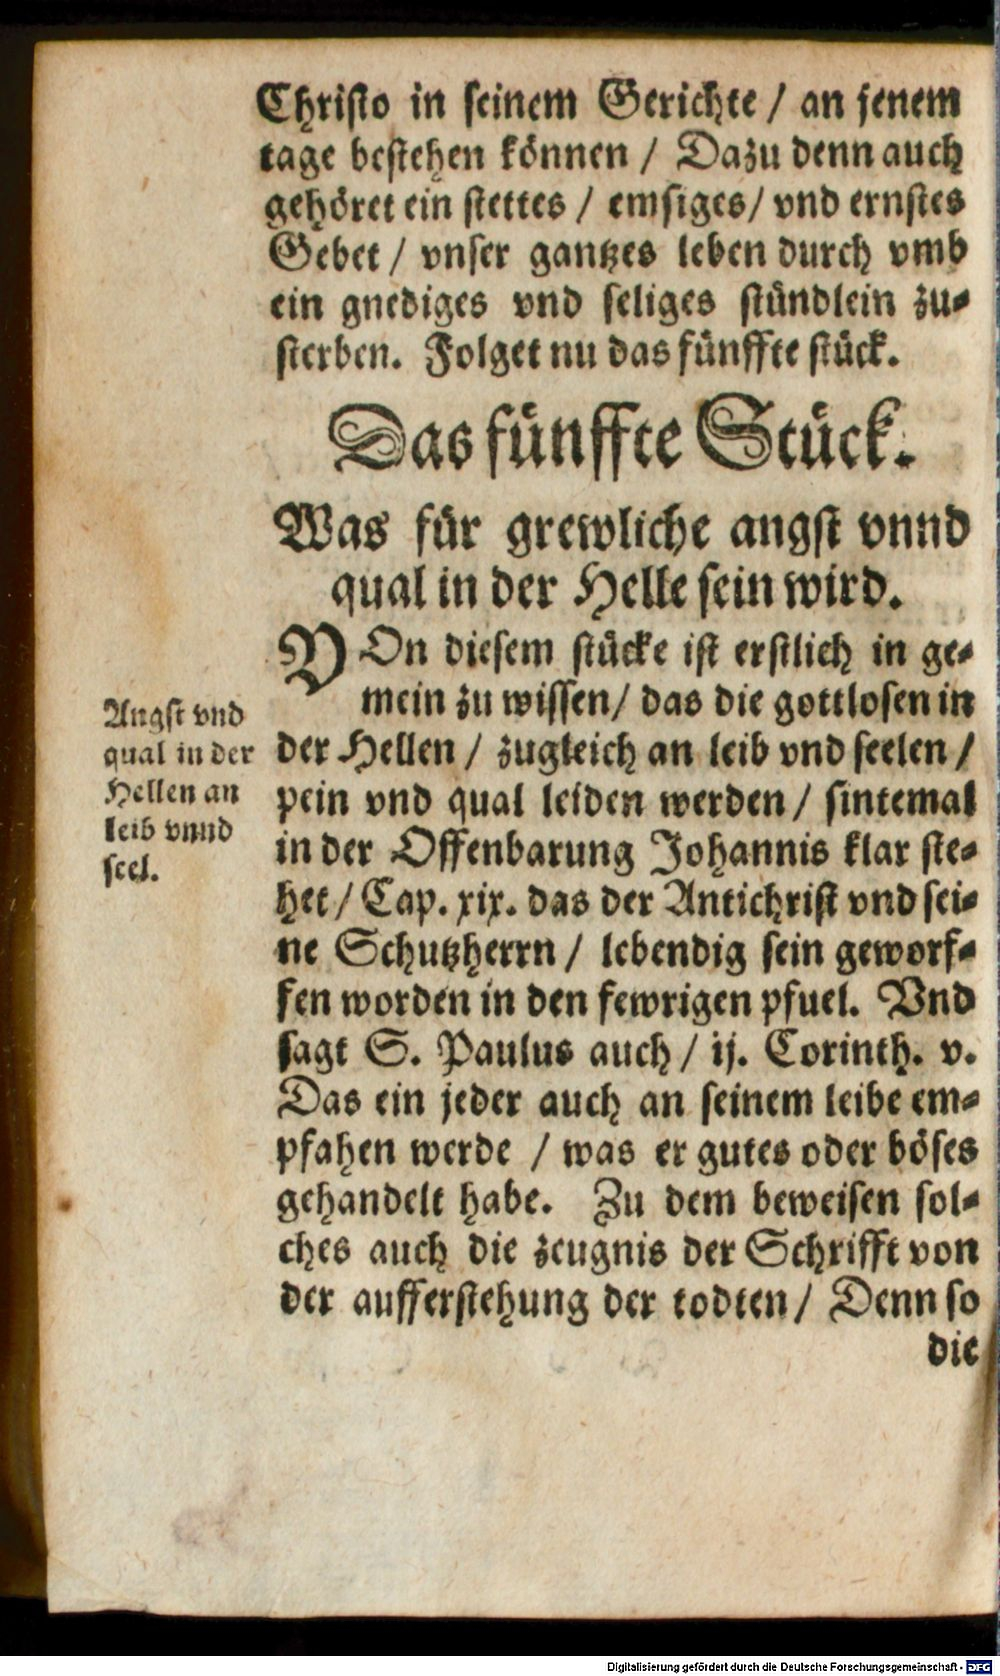 Christo in seinem Gerichte / an jenem
tage bestehen können / Dazu denn auch
gehöret ein stettes / emsiges / vnd ernstes
Gebet / vnser gantzes leben durch vmb
ein gnediges vnd seliges stündlein zu-
sterben. Folget nu das fünffte stück.
Das fünffte Stück.
Was für grewliche angst vnnd
qual in der Helle sein wird.
VOn diesem stücke ist erstlich in ge-
mein zu wissen / das die gottlosen in
der Hellen / zugleich an leib vnd seelen /
pein vnd qual leiden werden / sintemal
in der Offenbarung Johannis klar ste-
het / Cap. xix. das der Antichrist vnd sei-
ne Schutzherrn / lebendig sein geworf-
fen worden in den fewrigen pfuel. Vnd
sagt S. Paulus auch / ij. Corinth. v.
Das ein jeder auch an seinem leibe em-
pfahen werde / was er gutes oder böses
gehandelt habe. Zu dem beweisen sol-
ches auch die zeugnis der Schrifft von
der aufferstehung der todten / Denn so
die
Angst vnd
qual in der
Hellen an
leib vnnd
seel.
Digitalisierung gefördert durch die Deutsche Forschungsgemeinschaft - DFG